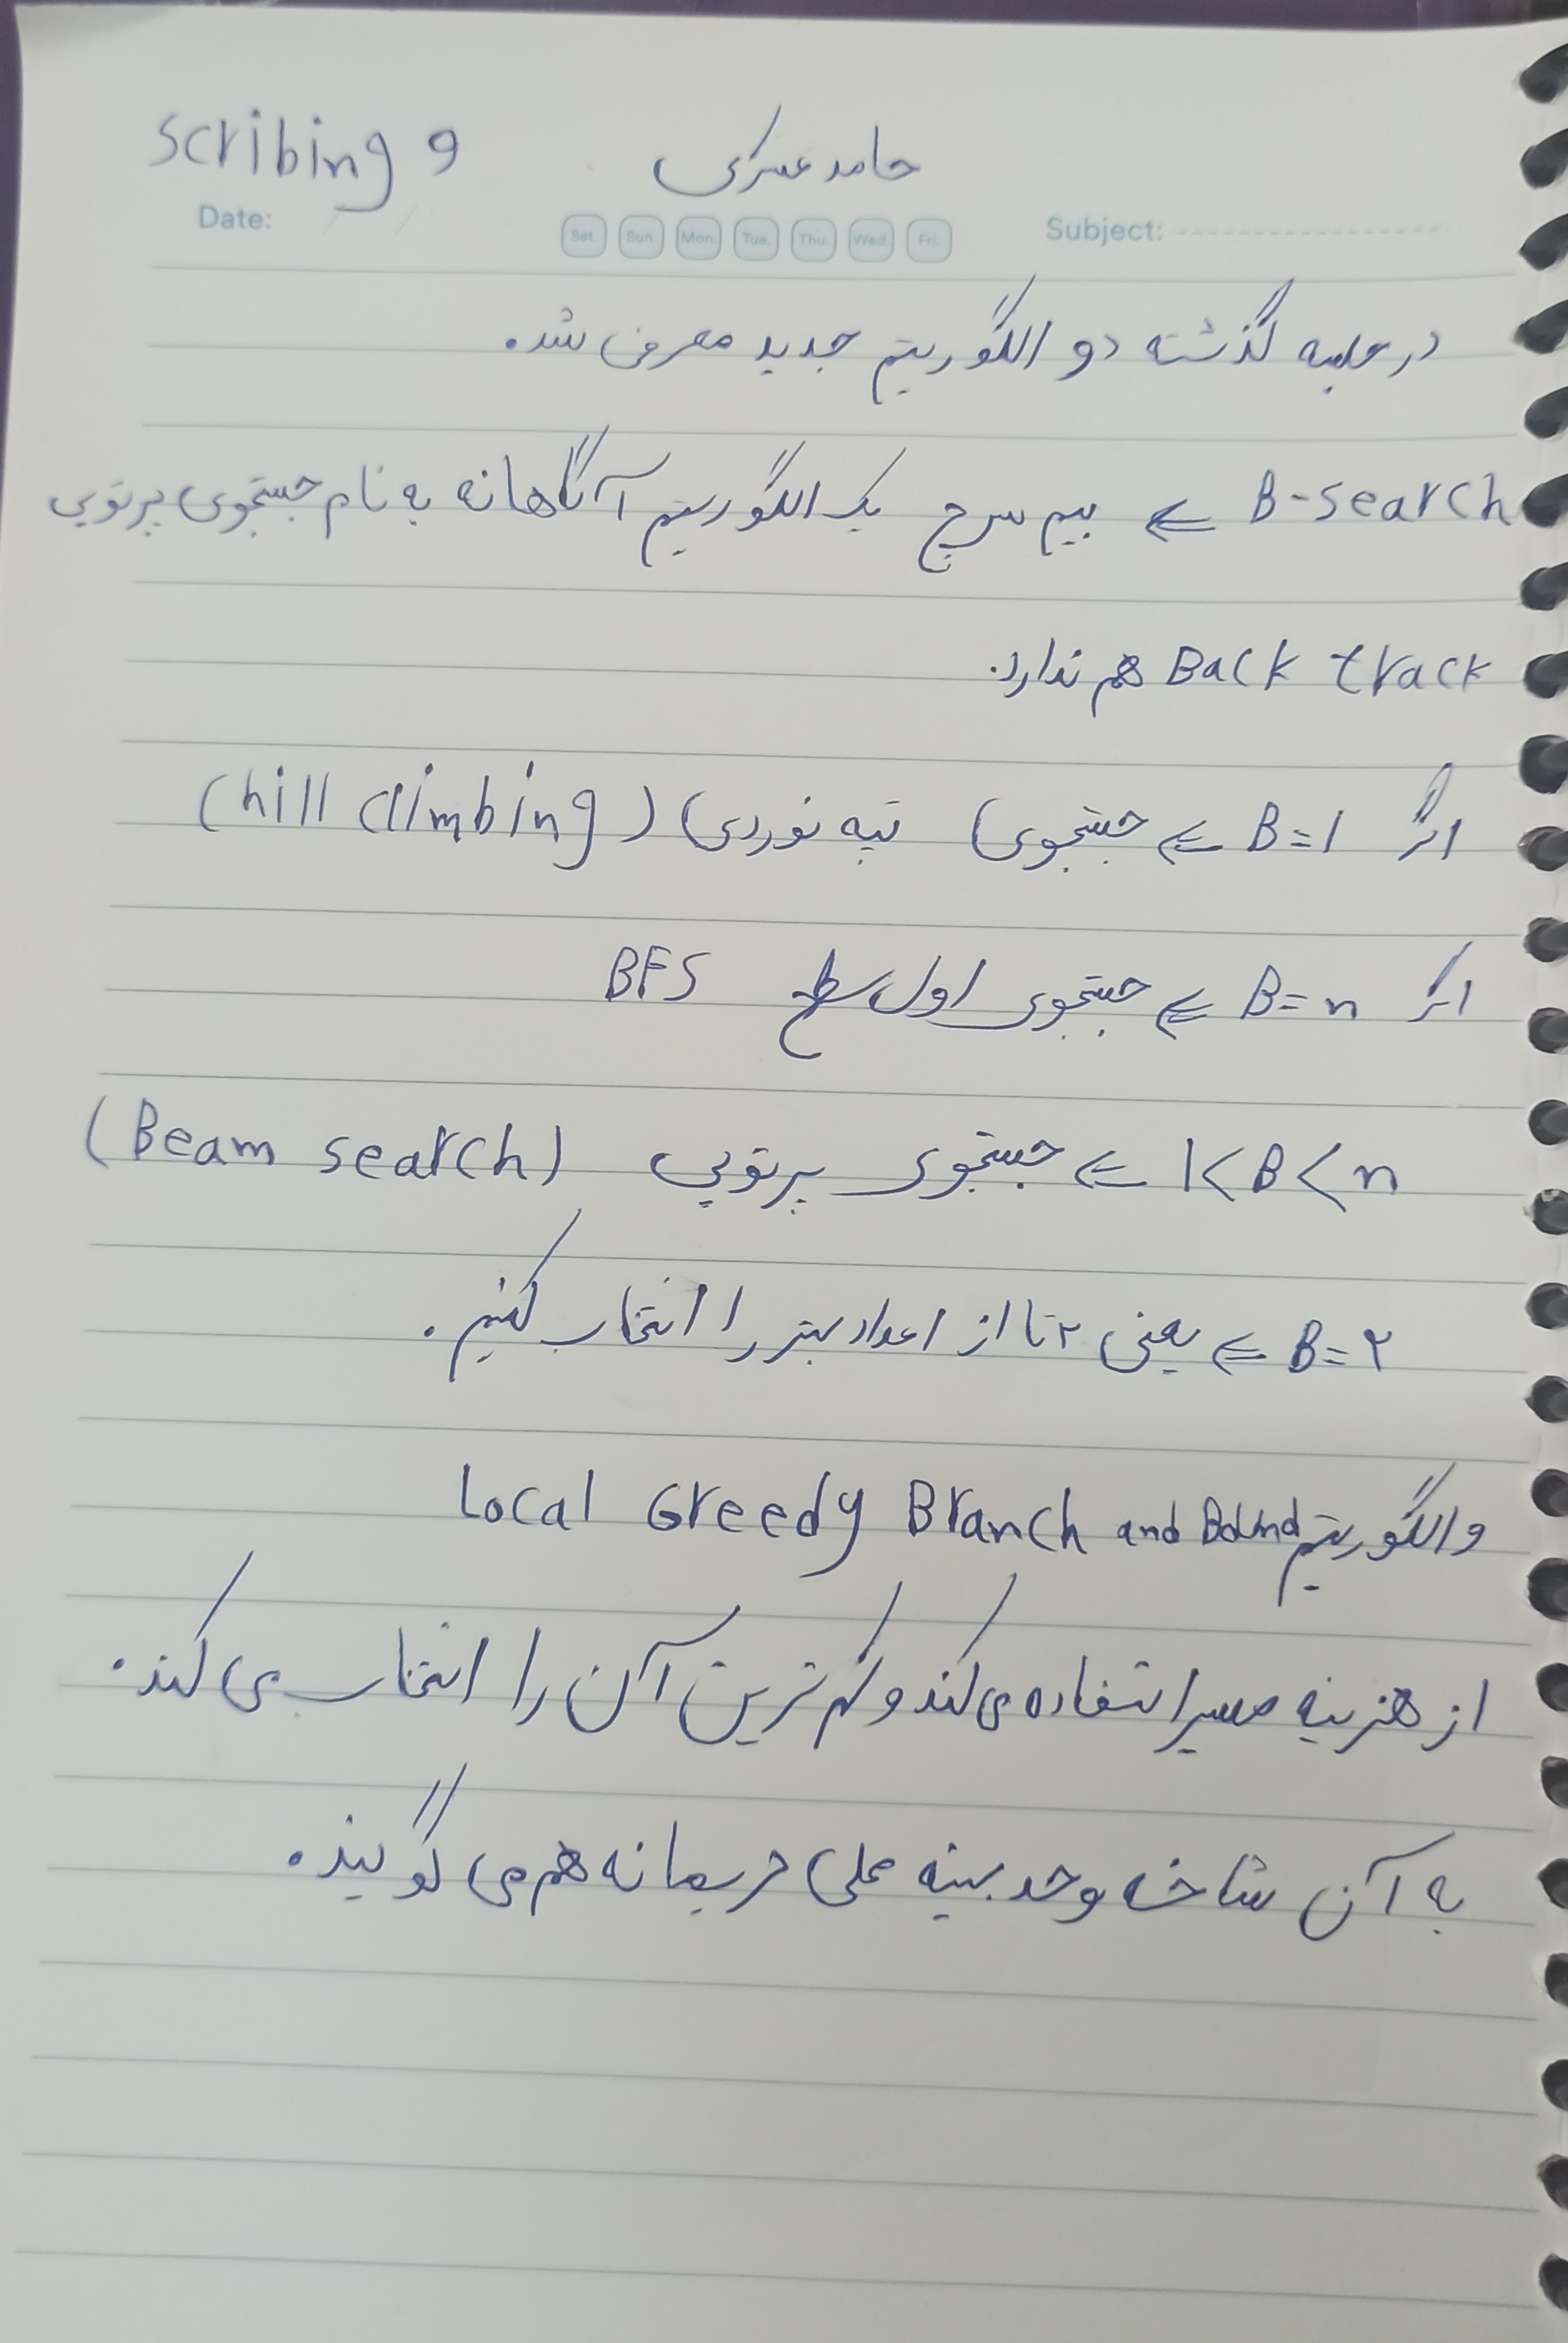 scribing 9 حامد عسکری
Date: Sat. Sun. Mon. Tue. Thu. Wed. Fri. Subject:
در جلسه گذشته دو الگوریتم جدید معرفی شد.
B-search ⇐ بیم سرچ یک الگوریتم آگاهانه به نام جستجوی پرتویی
Back track هم ندارد.
اگر B=1 ⇐ جستجوی تپه نوردی (hill climbing)
اگر B=n ⇐ جستجوی اول سطح BFS
1<B<n ⇐ جستجوی پرتویی (Beam search)
B=۲ ⇐ یعنی ۲ تا از اعداد بهتر را انتخاب کنیم.
و الگوریتم Local Greedy Branch and Bound
از هزینه مسیر استفاده می کند و کم ترین آن را انتخاب می کند.
به آن شاخه و حد بهینه محلی حریصانه هم می گویند.